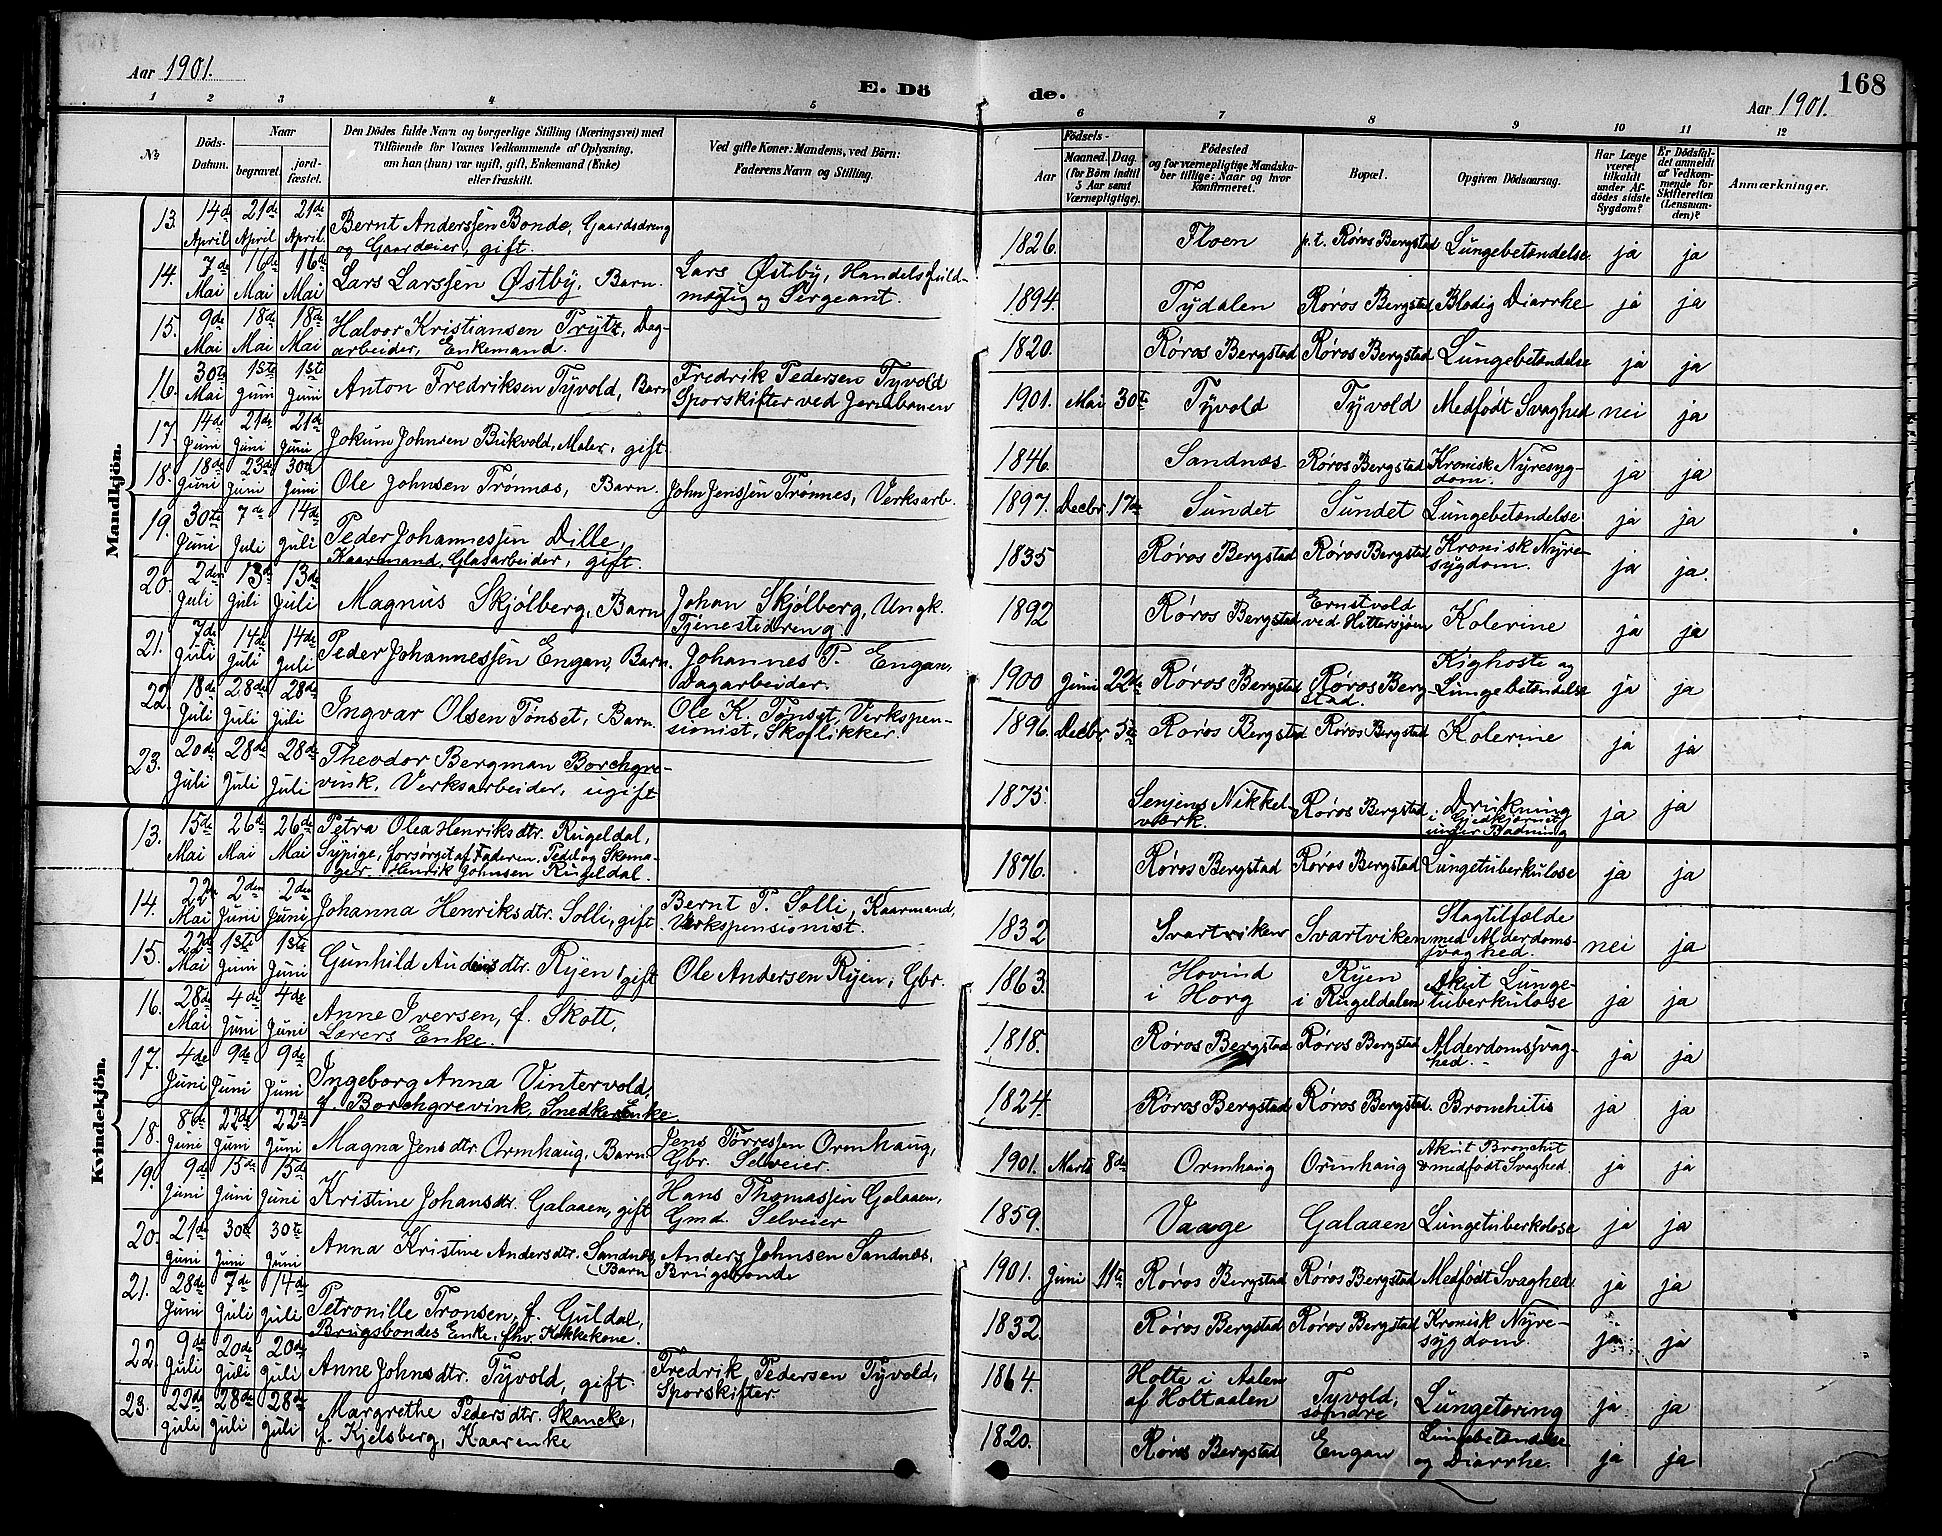 Aar 1901.
E. Dö
de.
168
Aar 1901.
1 2 3 4 5 6 7 8 9 10 11 12
No
Döds-
Datum.
Naar
begravet.
jord-
fæstet.
Den Dödes fulde Navn og borgerlige Stilling (Næringsvei) med
Tilföiende for Voxnes Vedkommende af Oplysning,
om han (hun) var ugift, gift, Enkemand (Enke)
eller fraskilt.
Ved gifte Koner: Mandens, ved Börn:
Faderens Navn og Stilling.
Födsels-
Aar
Maaned.
Dag.
(for Börn indtil
5 Aar samt
Værnepligtige).
Födested
og for værnepligtige Mandska-
ber tillige: Naar og hvor
Konfirmeret.
Bopæl.
Opgiven Dödsaarsag.
Har Læge
været
tilkaldt
under Af-
dödes sidste
Sygdom?
Er Dödsfal-
det anmeldt
af Vedkom-
mende for
Skifteretten
(Lensman-
den)?
Anmærkninger.
Mandkjön.
13. 14de April 21de April 21de April Bernt Anderssen Bonde, Gaardsdreng
og Gaardeier, gift.
1826. Floen p.t. Röros Bergstad Lungebetændelse ja ja
14. 7de Mai 16de Mai 16de Mai Lars Larssen Østby, Barn. Lars Østby, Handelsfuld-
mægtig og Sergeant.
1894. Tydalen Röros Bergstad Blodig Diarrhe ja ja
15. 9de Mai 18de Mai 18de Mai Halvor Kristiansen Prytz, Dag-
arbeider, Enkemand.
1820. Röros Bergstad Röros Bergstad Lungebetændelse ja ja
16. 30te Mai 1ste Juni 1ste Juni Anton Fredriksen Tyvold, Barn Fredrik Pedersen Tyvold
Sporskifter ved Jernbanen
1901. Mai 30te Tyvold Tyvold Medfödt Svaghed nei ja
17. 14de Juni 21de Juni 21de Juni Jokum Johnsen Bukvold, Maler, gift
1846. Sandnæs Röros Bergstad Kronisk Nyresyg-
dom. ja ja
18. 18de Juni 23de Juni 30te Juni Ole Johnsen Trönnæs, Barn. John Jenssen Trönnes, Verksarb.
1897. Decbr. 17de Sundet Sundet Lungebetændelse ja ja
19. 30te Juni 7de Juli 14de Juli Peder Johannessen Dille,
Kaarmand, Glasarbeider, gift.
1835 Röros Bergstad Röros Bergstad Kronisk Nyre-
sygdom. ja ja.
20. 2den Juli 13de Juli 13de Juli Magnus Skjölberg, Barn Johan Skjölberg, Ungk.
Tjenestedreng
1892 Röros Bergstad Ernstvold
ved Hittersjöen Kolerine ja ja
21. 7de Juli 14de Juli 14de Juli Peder Johannessen Engan, Barn. Johannes P. Engan,
Dagarbeider.
1900 Juni 22de Röros Bergstad Röros Berg-
stad. Kighoste og
Lungebetændelse ja ja
22. 18de Juli 28de Juli 28de Juli Ingvar Olsen Tönset, Barn. Ole K. Tönset, Verkspen-
sionist, Skoflikker.
1896 Decbr. 5te Röros Bergstad Röros Bergstad Kolerine ja ja
23. 20de Juli 28de Juli 28de Juli Theodor Bergman Borchgre-
vink, Verksarbeider, ugift
1875. Senjens Nikkel-
værk. Röros Bergstad Drukning
i Gjedkjernet
under Badning ja ja
Kvindekjön.
13. 15de Mai 26de Mai 26de Mai Petra Olea Henriksdtr. Rugeldal,
Sypige, forsörget af Faderen, Pedel og Skoma-
ger Henrik Johnsen Rugeldal.
1876. Röros Bergstad Röros Bergstad Lungetuberkulose ja ja
14. 22de Mai 2den Juni 2den Juni Johanna Henriksdtr. Solli, gift Bernt P. Solli, Kaarmand,
Verkspensionist.
1832 Svartviken Svartviken Slagtilfælde
med Alderdoms-
svaghed. nei ja
15. 22de Mai 1ste Juni 1ste Juni Gunhild Andersdtr. Ryen, gift Ole Andersen Ryen, Gbr.
1863. Hovind
i Horg Ryen
i Rugeldalen Akut Lunge-
tuberkulose ja ja
16. 28de Mai 4de Juni 4de Juni Anne Iversen, f. Skott,
Lærers Enke.
1818. Röros Bergstad Röros Bergstad Alderdomssvag-
hed. ja ja
17. 4de Juni 9de Juni 9de Juni Ingeborg Anna Vintervold,
f. Borchgrevink, Snedkerenke
1824. Röros Bergstad Röros Bergstad. Bronchitis ja ja
18. 8de Juni 22de Juni 22de Juni Magna Jensdtr. Ormhaug, Barn Jens Törressen Ormhaug,
Gbr. Selveier
1901. Marts 8de Ormhaug Ormhaug Akut Bronchit
& medfödt Svaghed. ja ja
19. 9de Juni 15de Juni 15de Juni Kristine Johansdtr. Galaaen, gift Hans Thomassen Galaaen,
Gmd. Selveier
1859. Vaage Galaaen Lungetuberkulose ja ja
20. 21de Juni 30te Juni 30te Juni Anna Kristine Andersdtr. Sandnæs,
Barn Anders Johnsen Sandnæs,
Brugsbonde
1901. Juni 11te Röros Bergstad Röros Bergstad Medfödt Svaghed ja ja
21. 28de Juni 7de Juli 14de Juli Petronille Tronsen, f. Guldal,
Brugsbondes Enke, fhv. Kokkekone.
1832. Röros Bergstad Röros Bergstad Kronisk Nyre-
sygdom. ja ja
22. 9de Juli 20de Juli 20de Juli Anne Johnsdtr. Tyvold, gift. Fredrik Pedersen Tyvold,
Sporskifter
1864. Holte i Aalen
af Holtaalen Tyvold,
søndre Lungetæring ja ja
23. 22de Juli 28de Juli 28de Juli Margrethe Pedersdtr. Skancke,
f. Kjelsberg, Kaarenke
1820. Röros Bergstad Engan Lungebetændelse
og Diarrhe. ja ja